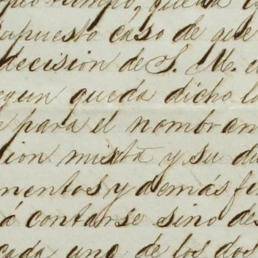 tiempo, queda
supuesto caso de que
decision de S. M.
segun queda dicho lo
para el nombram
sion mixta y su du
mentos y demás fu
á contarse sino des
cada uno de los dos